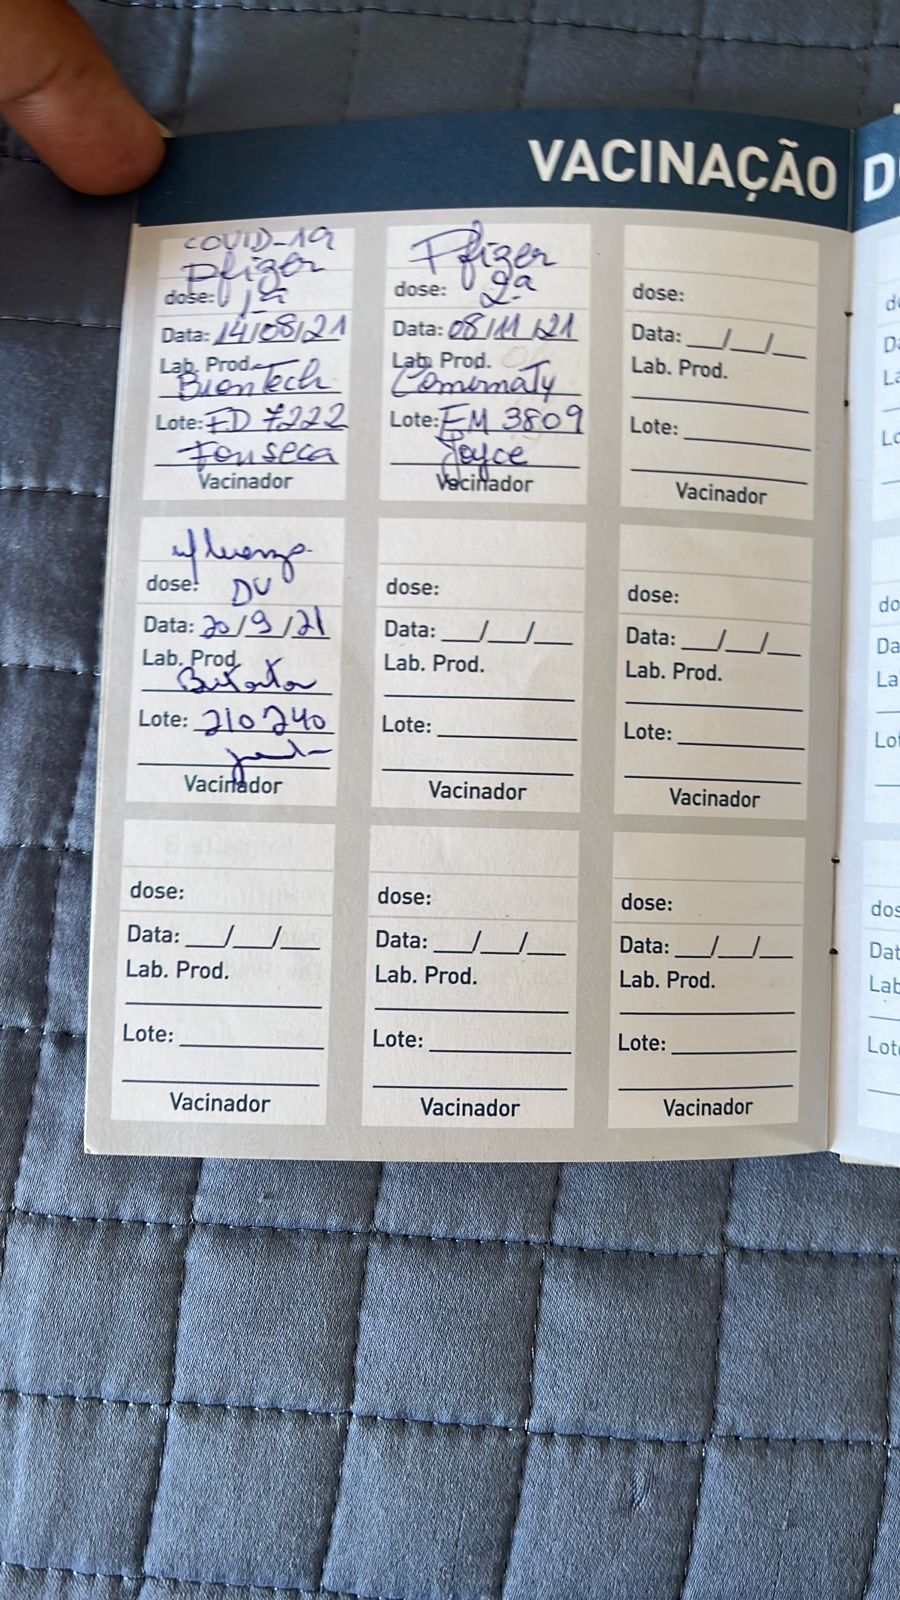 VACINAÇÃO
COVID-19
Pfizer
dose: 1ª
Data: 14/08/21
Lab. Prod.
BionTech
Lote: FD 7222
Fonseca
Vacinador
Pfizer
dose: 2ª
Data: 08/11/21
Lab. Prod.
Comirnaty
Lote: FM 3809
Joyce
Vacinador
dose:
Data: __/__/__
Lab. Prod.
Lote:
Vacinador
influenza
dose: DU
Data: 20/9/21
Lab. Prod.
Butantan
Lote: 210240
Vacinador
dose:
Data: __/__/__
Lab. Prod.
Lote:
Vacinador
dose:
Data: __/__/__
Lab. Prod.
Lote:
Vacinador
dose:
Data: __/__/__
Lab. Prod.
Lote:
Vacinador
dose:
Data: __/__/__
Lab. Prod.
Lote:
Vacinador
dose:
Data: __/__/__
Lab. Prod.
Lote:
Vacinador